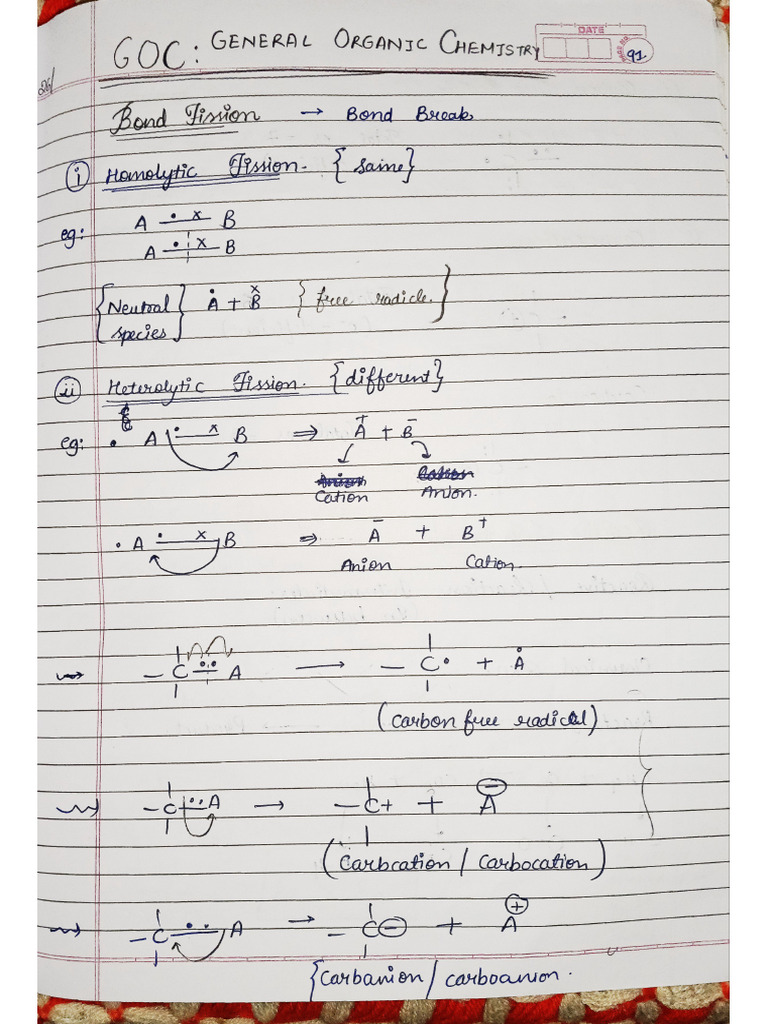 GOC: GENERAL ORGANIC CHEMISTRY
DATE
PAGE NO.
91
26/
Bond Fission → Bond Break
(i) Homolytic Fission. {Same}
eg: A •× B
A •¦× B
{Neutral species} Ȧ + B̽ {free radicle.}
(ii) Heterolytic Fission. {different}
eg: • A •× B ⇒ A⁺ + B⁻
Cation Anion.
• A •× B ⇒ A⁻ + B⁺
Anion Cation.
– C •• A → – C• + Ȧ
(Carbon free radical)
– C •• A → – C+ + A⊖
(Carbcation / Carbocation)
– C •• A → – C⊖ + A⊕
{Carbanion / carboanion.